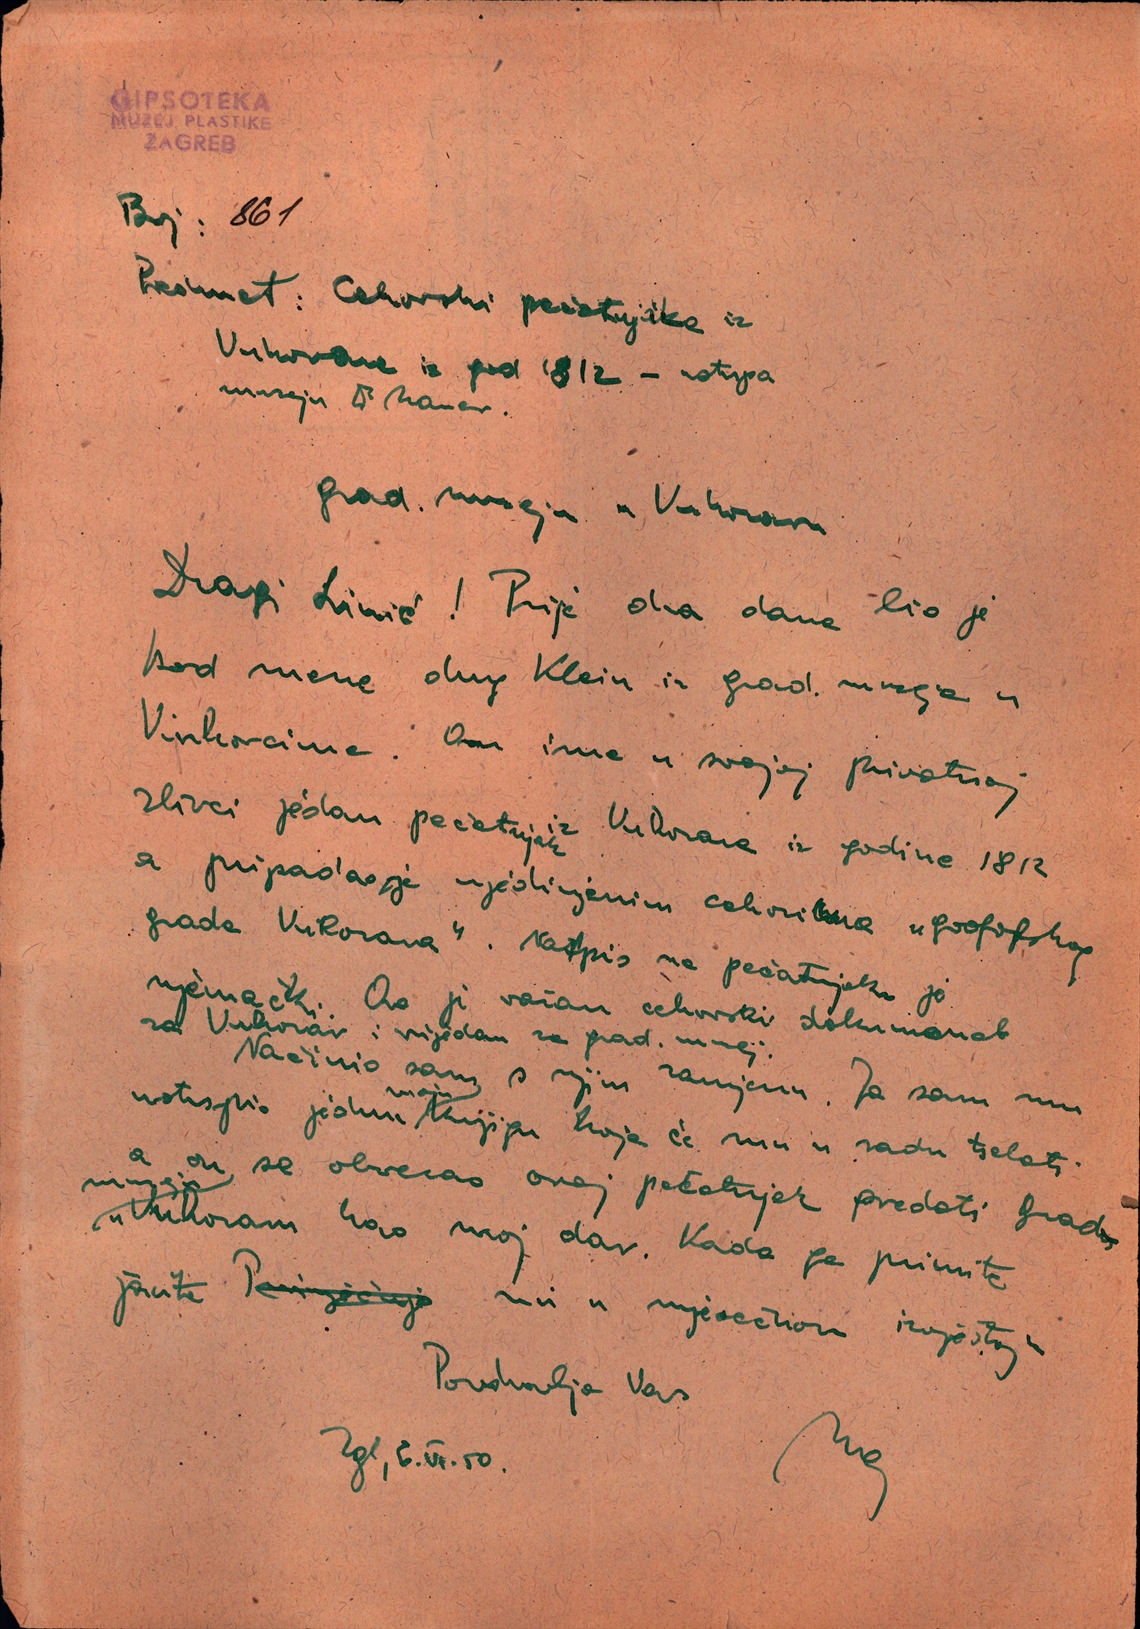 GIPSOTEKA
MUZEJ PLASTIKE
ZAGREB
Broj: 861
Predmet: Cehovski pečatnjaka iz
Vukovara iz god 1812 – ustupa
muzeju
grad. muzeju u Vukovaru
Dragi Linić! Prije dva dana bio je
kod mene drug Klein iz grad. muzeja u
Vinkovcima. On ima u svojoj privatnoj
zbirci jedan pečatnjak iz Vukovara iz godine 1812
a pripadao je ujedinjenim cehovima
grada Vukovara". Natpis na pečatnjaku je
njemački. Ovo je važan cehovski dokumenat
za Vukovar i vrijedan za grad. muzej.
Načinio sam s njim zamjenu. Ja sam mu
ustupio jednu moju knjigu koja će mu u radu trebati
a on se obvezao ovaj pečatnjak predati Grad.
muzeju u Vukovaru kao moj dar. Kada ga primite
javite mi u mjesečnom izvještaju
Pozdravlja Vas
Zgb, 6.VI.50.